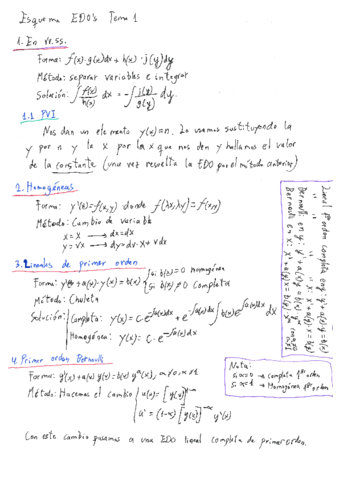 Esquema EDO's Tema 1
1. En vv.ss.
Forma: f(x)·g(x)dx + h(x)·j(y)dy
Método: separar variables e integrar
Solución: ∫ f(x)/h(x) dx = -∫ j(y)/g(y) dy
1.1 PVI
Nos dan un elemento y(x)=n. Lo usamos sustituyendo la
y por n y la x por la x que nos den y hallamos el valor
de la constante (una vez resuelta la EDO por el método anterior)
2. Homogéneas
Forma: y'(x)=f(x,y) donde f(λx,λy)=f(x,y)
Método: Cambio de variable
x=x → dx=dx
y=vx → dy=dv·x+vdx
3. Lineales de primer orden
Forma: y'+a(x)·y(x)=b(x) { si b(x)=0 homogénea
Si b(x)≠0 Completa
Método: Chuleta
Solución: Completa: y(x)=c·e^-∫a(x)dx + e^-∫a(x)dx ∫b(x)e^∫a(x)dx dx
Homogénea: y(x)=c·e^-∫a(x)dx
4. Primer orden Bernoulli
Forma: y'(x)+a(x)y(x)=b(x) y^α(x), α≠0, α≠1
Método: Hacemos el cambio { u(x)=[y(x)]^1-α
u'=(1-α)[y(x)]^-α y'(x)
Con este cambio pasamos a una EDO lineal completa de primer orden.
Nota:
Si α=0 → Completa 1er orden
Si α=1 → Homogénea 1er orden
Lineal 1er orden completa en y: y'+a(x)y=b(x)
" " " " x: x'+a(y)x=b(y)
Bernoulli en y: y'+a(x)y=b(x)y^α
Bernoulli en x: x'+a(y)x=b(y)x^α